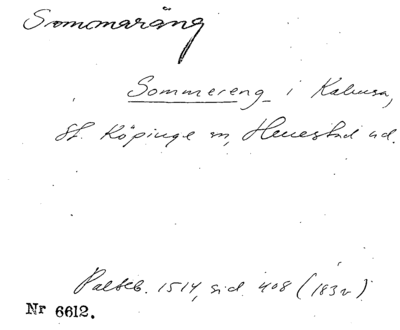 Sommaräng
Sommereng i Kabusa,
St. Köpinge sn, Herrestad hd.
Palteb. 1514, sid. 408 (183v)
Nr 6612.